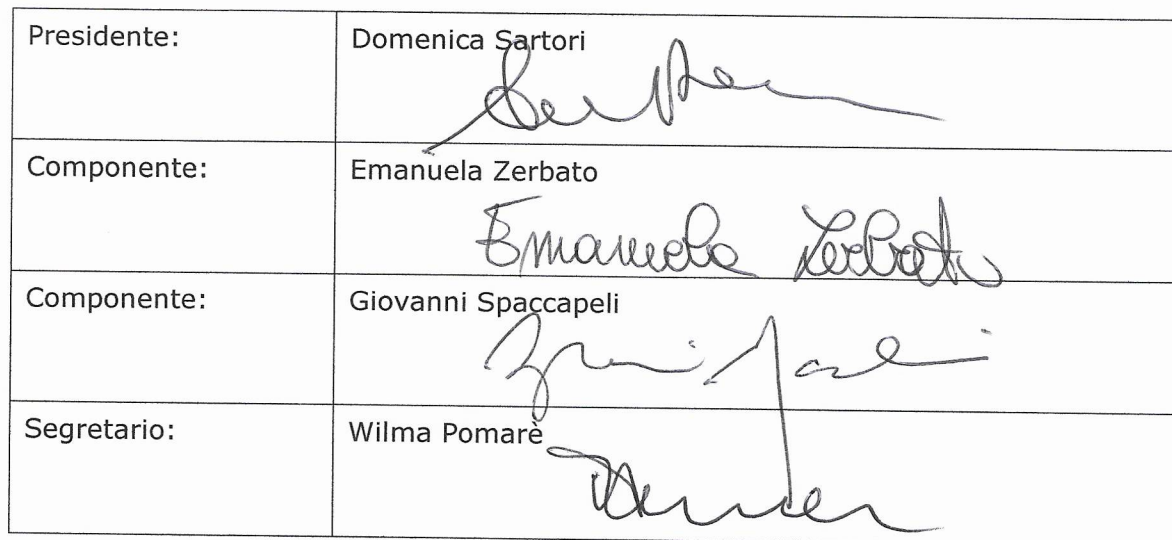 Presidente:
Domenica Sartori
Componente:
Emanuela Zerbato
Emanuela Zerbato
Componente:
Giovanni Spaccapeli
Segretario:
Wilma Pomarè